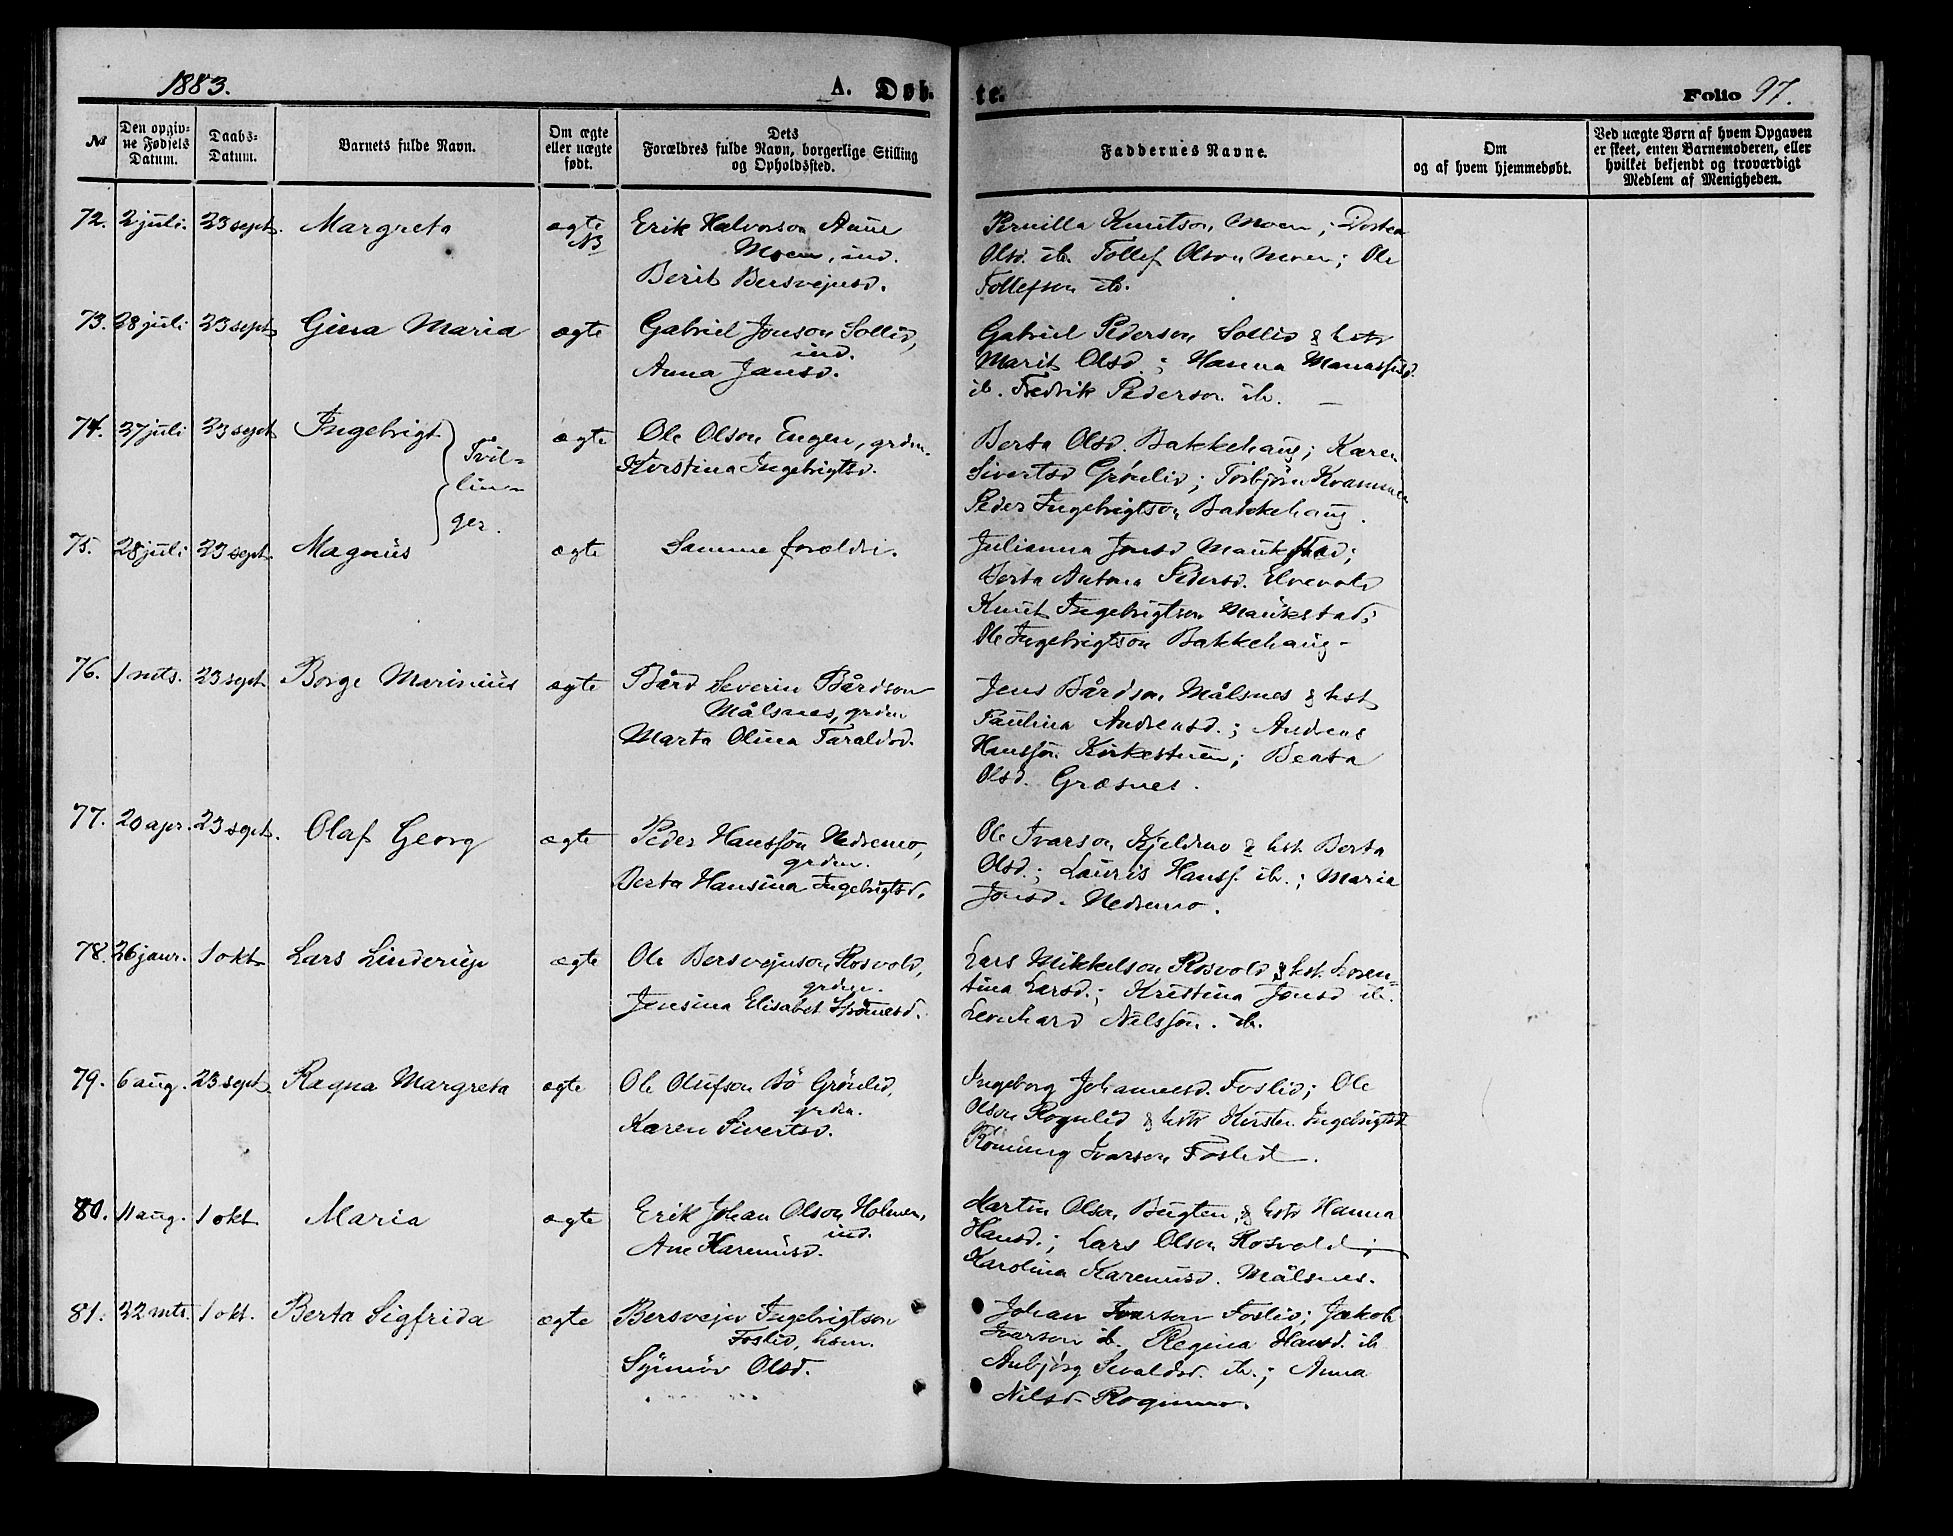 1883.
A. Døb-
te.
Folio 97.
№
Den opgiv-
ne Fødsels
Datum.
Daabs-
Datum.
Barnets fulde Navn.
Om ægte
eller uægte
født.
Dets
Forældres fulde Navn, borgerlige Stilling
og Opholdssted.
Faddernes Navne.
Om
og af hvem hjemmedøbt.
Ved uægte Børn af hvem Opgaven
er skeet, enten Barnemoderen, eller
hvilket bekjendt og troværdigt
Medlem af Menigheden.
72. 2 juli. 23 sept. Margreta
ægte
NB
Erik Halvorson Aune
Moen, ind.
Berit Bersvejnsd.
Pernilla Knutson Moen; Dortea
Olsd. ib. Tollef Olson Moen; Ole
Tollefson ib.
73. 28 juli 23 sept. Gina Maria ægte
Gabriel Jonson Sollid,
ind.
Anna Jansd.
Gabriel Pederson Sollid & hstr
Marit Olsd.; Hanna Manassesd.
ib. Fredrik Pederson ib.
74. 27 juli 23 sept Ingebrigt
Tvil-
lin-
ger.
ægte
Ole Olson Engen, grdm.
Kirstina Ingebrigtsd.
Berta Olsd. Bakkehaug; Karen
Sivertsd Grönlid; Torbjörn Kvammen
Peder Ingebrigtson Bakkehaug.
75. 28 juli 23 sept. Magnus ægte
Samme forældre.
Julianna Jonsd Maukstad;
Berta Antona Pedersd. Elvevold
Knut Ingebrigtson Maukstad;
Ole Ingebrigtson Bakkehaug-
76. 1 mts. 23 sept Borge Marinius ægte
Bård Severin Bårdson
Målsnes, grdm
Marta Olina Taraldsd.
Jens Bårdson Målsnes & hst
Paulina Andreasd.; Andreas
Hanssön Kirkestuen; Beata
Olsd. Græsnes.
77. 20 apr. 23 sept. Olaf Georg ægte
Peder Hanssön Nedremo,
grdm.
Berta Hansina Ingebrigtsd.
Ole Ivarson Kjeldmo & hst. Berta
Olsd.; Lauris Hanss. ib.; Maria
Jonsd. Nedremo.
78. 26 janr. 1 okt Lars Linderup ægte
Ole Bersvejnson Rosvold,
grdm.
Jensina Elisabet
Lars Mikkelson Rosvold & hst. Loren-
tina Larsd.; Kristina Jonsd ib.
Leonhard Nilssön. ib.
79. 6 aug. 23 sept. Ragna Margreta ægte
Ole Olufson Bö Grönlid,
grdm.
Karen Sivertsd.
Ingeborg Johannesd. Foslid; Ole
Olson Rognlid & hstr Kirsten Ingebrigtsd.
Ivarson Foslid.
80. 11 aug. 1 okt Maria ægte
Erik Johan Olson Holmen,
ind.
Ane Karenusd.
Martin Olson Bugten, & hstr Hanna
Hansd.; Lars Olson Rosvold;
Karolina Karenusd. Målsnes.
81. 22 mts. 1 okt. Berta Sigfrida ægte
Bersvejn Ingebrigtson
Foslid, hsm.
Synnöv Olsd.
Johan Ivarson Foslid; Jakob
Ivarson ib. Regina Hansd. ib
Anbjörg Sivaldsd. ib.; Anna
Nilsd. Rognmo.